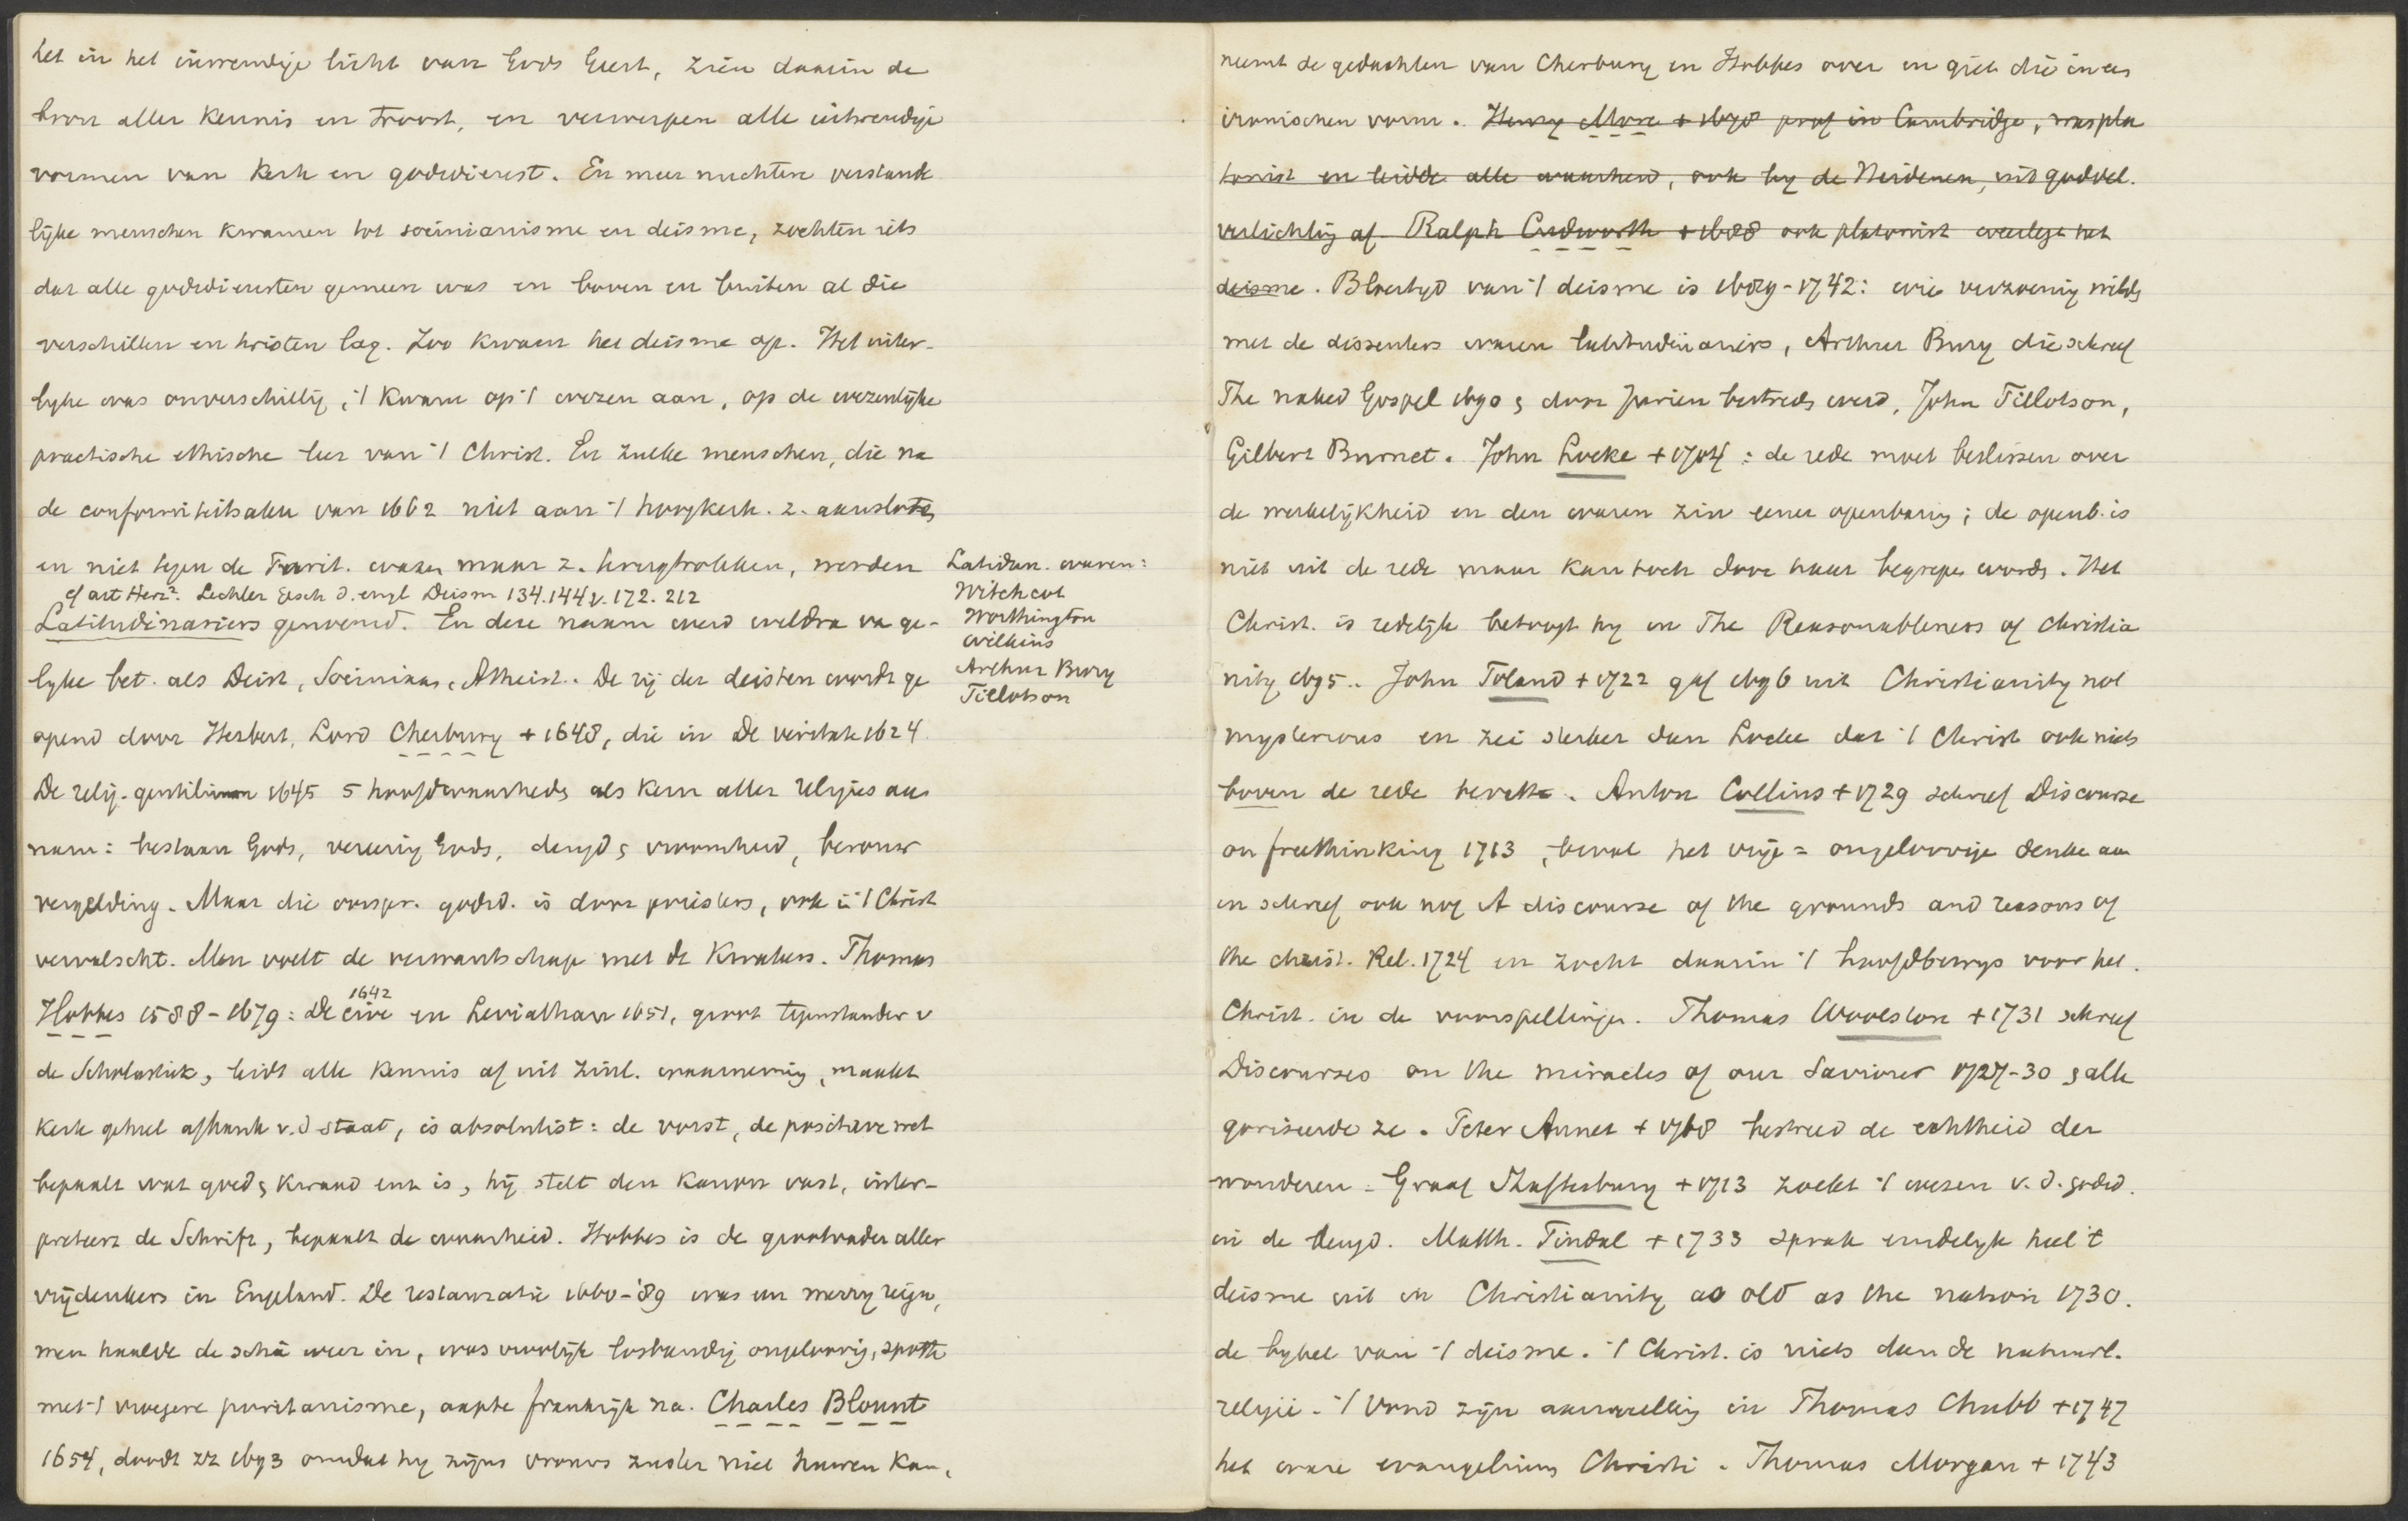 het in het inwendige licht van Gods Geest, zien daarin de
bron aller kennis en troost, en verwerpen alle uitwendige
vormen van kerk en godsdienst. En meer nuchtere verstande
lijke menschen kwamen tot socinianisme en deisme, zochten iets
dat alle godsdiensten gemeen was en boven en buiten al die
verschillen en twisten lag. Zoo kwam het deisme op. Het uiter-
lyke was onverschillig, 't kwam op 't wezen aan, op de wezenlijke
practische ethische leer van 't Christ. En zulke menschen, die na
de conformiteitsakte van 1662 niet aan 't hoogkerk. z. aansloten
en niet tegen de Purit. waren maar z. terugtrokken, werden
cf art Herz². Lechler Gesch d. engl Deism 134.144 v. 172. 212
Latitudinariers genoemd. En deze naam werd weldra va ge-
lyke bet. als Deist, Sociniaan, Atheist. De rij der deisten wordt ge
opend door Herbert, Lord Cherbury + 1648, die in De veritate 1624
De relig. gentilium 1645 5 hoofdwaarheds als kern aller religies aan
nam: bestaan Gods, vereerig Gods, deugd & vroomheid, berouw
vergelding. Maar die oorspr. godsd. is door priesters, ook in 't Christ
vervalscht. Men voelt de verwantschap met de Kwakers. Thomas
1642
Hobbes 1588-1679: De cive en Leviathan 1651, groot tegenstander v
de Scholastiek, leidt alle kennis af uit zinl. waarneming, maakt
kerk geheel afhank v. d staat, is absolutist: de vorst, de positieve wet
bepaalt wat goed & kwaad enz is, hij stelt den kanon vast, inter-
preteert de Schrift, bepaalt de waarheid. Hobbes is de grootvader aller
vrijdenkers in Engeland. De restauratie 1660-'89 was een merry reign,
men haalde de schâ weer in, was vroolijk losbandig ongeloovig, spotte
met 't vroegere puritanisme, aapte frankrijk na. Charles Blount
1654, doodt zz 1693 omdat hy zijns vrouws zuster niet huwen kan,
Latidun. waren:
Witchcot
Worthington
Wilkins
Arthur Bury
Tillotson
neemt de gedachten van Cherbury en Hobbes over en giet die in een
ironischen vorm. Henry More + 1698 prof in Cambridge, was pla
tonist en leidde alle waarheid, ook by de Heidenen, uit goddel.
verlichtig af Ralph Cudworth + 1688 ook platonist weerlegt het
deisme. Bloeitijd van 't deisme is 1689-1742: wie verzoenig wilds
met de dissenters waren latitudinariers, Arthur Bury die schreef
The naked Gospel 1690 & door Jurieu bestreds werd, John Tillotson,
Gilbert Burnet. John Locke + 1704: de rede moet beslissen over
de werkelijkheid en den waren zin eener openbarig; de openb. is
niet uit de rede maar kan toch door haar begrepe words. Het
Christ. is redelijk betoogt hy in The Reasonableness of christia
nity 1695.. John Toland + 1722 gaf 1696 uit Christianity not
mysterious en zei sterker dan Locke dat 't Christ ook niets
boven de rede bevatte. Anton Collins + 1729 schreef Discourse
on freethinking 1713, beval het vrije = ongeloovige denke aan
en schreef ook nog A discourse of the grounds and reasons of
the christ. Rel. 1724 en zocht daarin 't hoofdbewys voor het
Christ. in de voorspellinge. Thomas Woolston + 1731 schreef
Discourses on the miracles of our Saviour 1727-30 & alle
goriseerde ze. Peter Annet + 1768 bestreed de echtheid der
wonderen. Graaf Shaftesbury + 1713 zoekt 't wezen v. d. godsd.
in de deugd. Matth. Tindal + 1733 sprak eindelyk heel 't
deisme uit in Christianity as old as the nation 1730.
de bybel van 't deisme. 't Christ. is niets dan de natuurl.
religie. 't Vond zijn aanvullig in Thomas Chubb + 1747
het ware evangelium Christi. Thomas Morgan + 1743